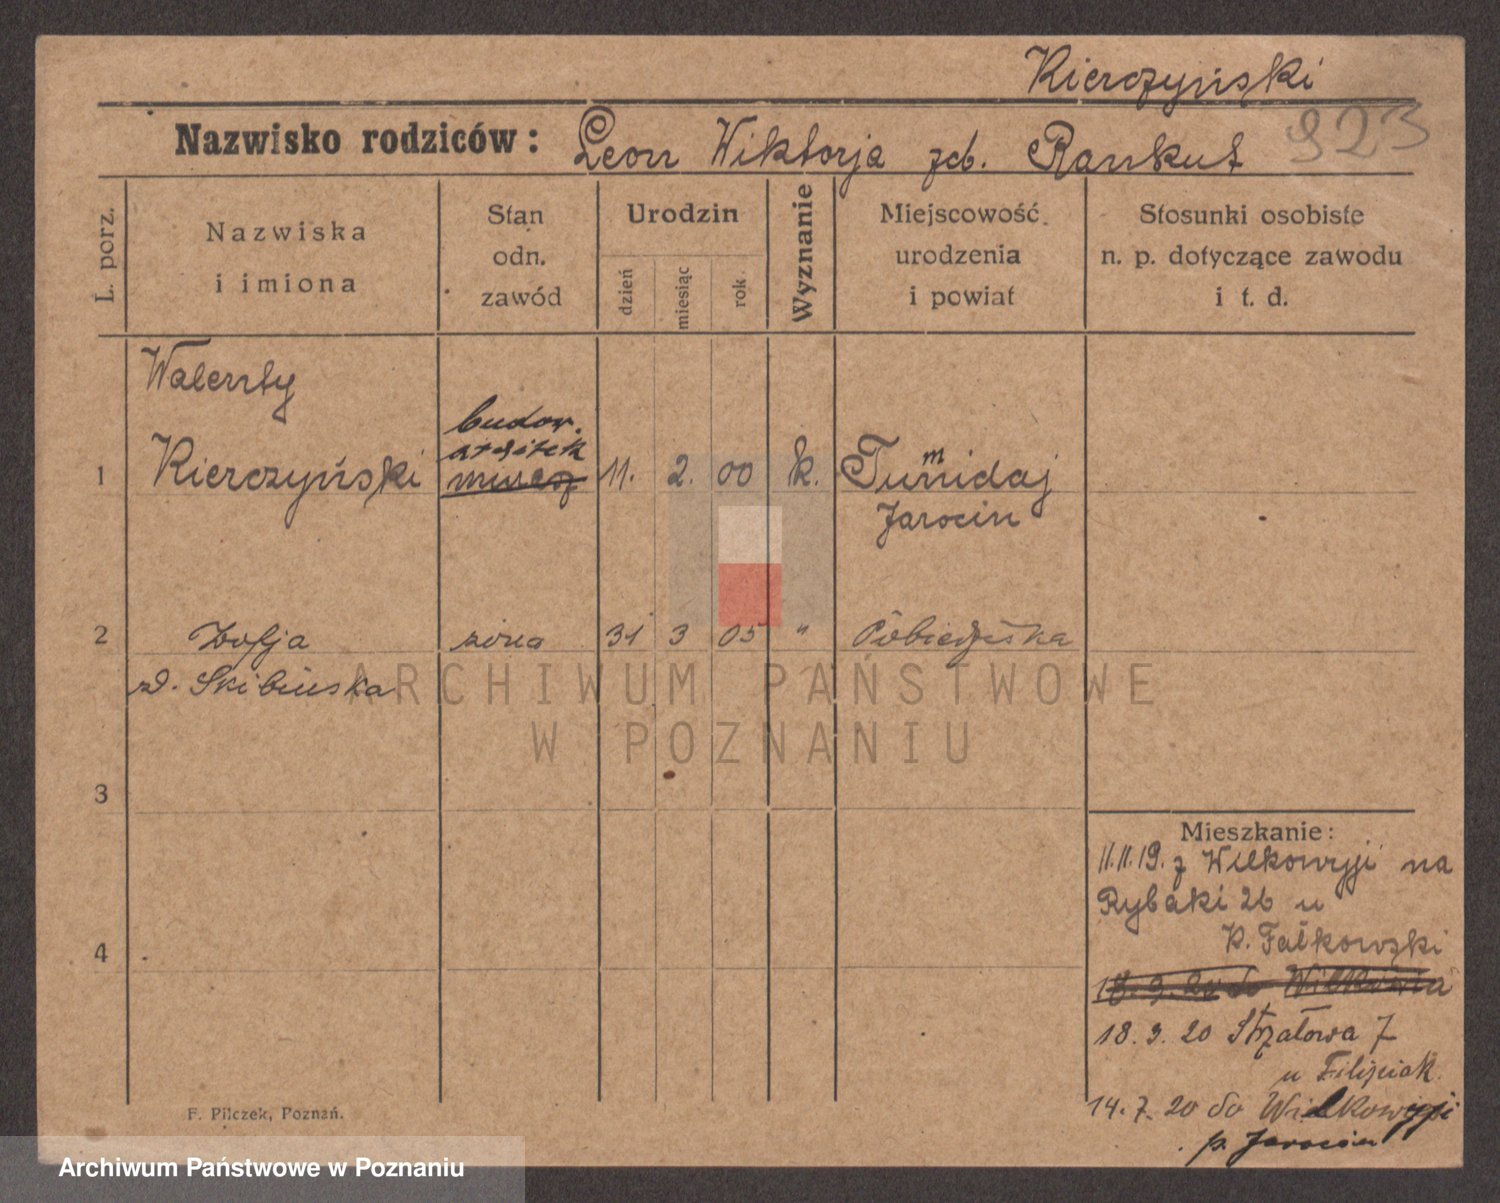 Kierczyński
Nazwisko rodziców: Leon Wiktorja zd. Rankut 923
L. porz.
Nazwiska
i imiona
Stan
odn.
zawód
Urodzin
dzień
miesiąc
rok
Wyznanie
Miejscowość
urodzenia
i powiat
Stosunki osobiste
n. p. dotyczące zawodu
i t. d.
Walenty
budow.
1 Kierczyński 11. 2. 00 k. Tumidaj
Jarocin
2 Zofja żona 31 3 05 " Pobiedziska
zd. Skibińska
3
4
Mieszkanie:
11.11.19. z Wilkowyji na
Rybaki 26 u
p. Fałkowski
18.3.20 do
18. 3. 20 Strzałowa 7
u Filipiak
14. 7. 20 do Wilkowyji
p. Jarocin
F. Pilczek, Poznań.
ARCHIWUM PAŃSTWOWE
W POZNANIU
Archiwum Państwowe w Poznaniu